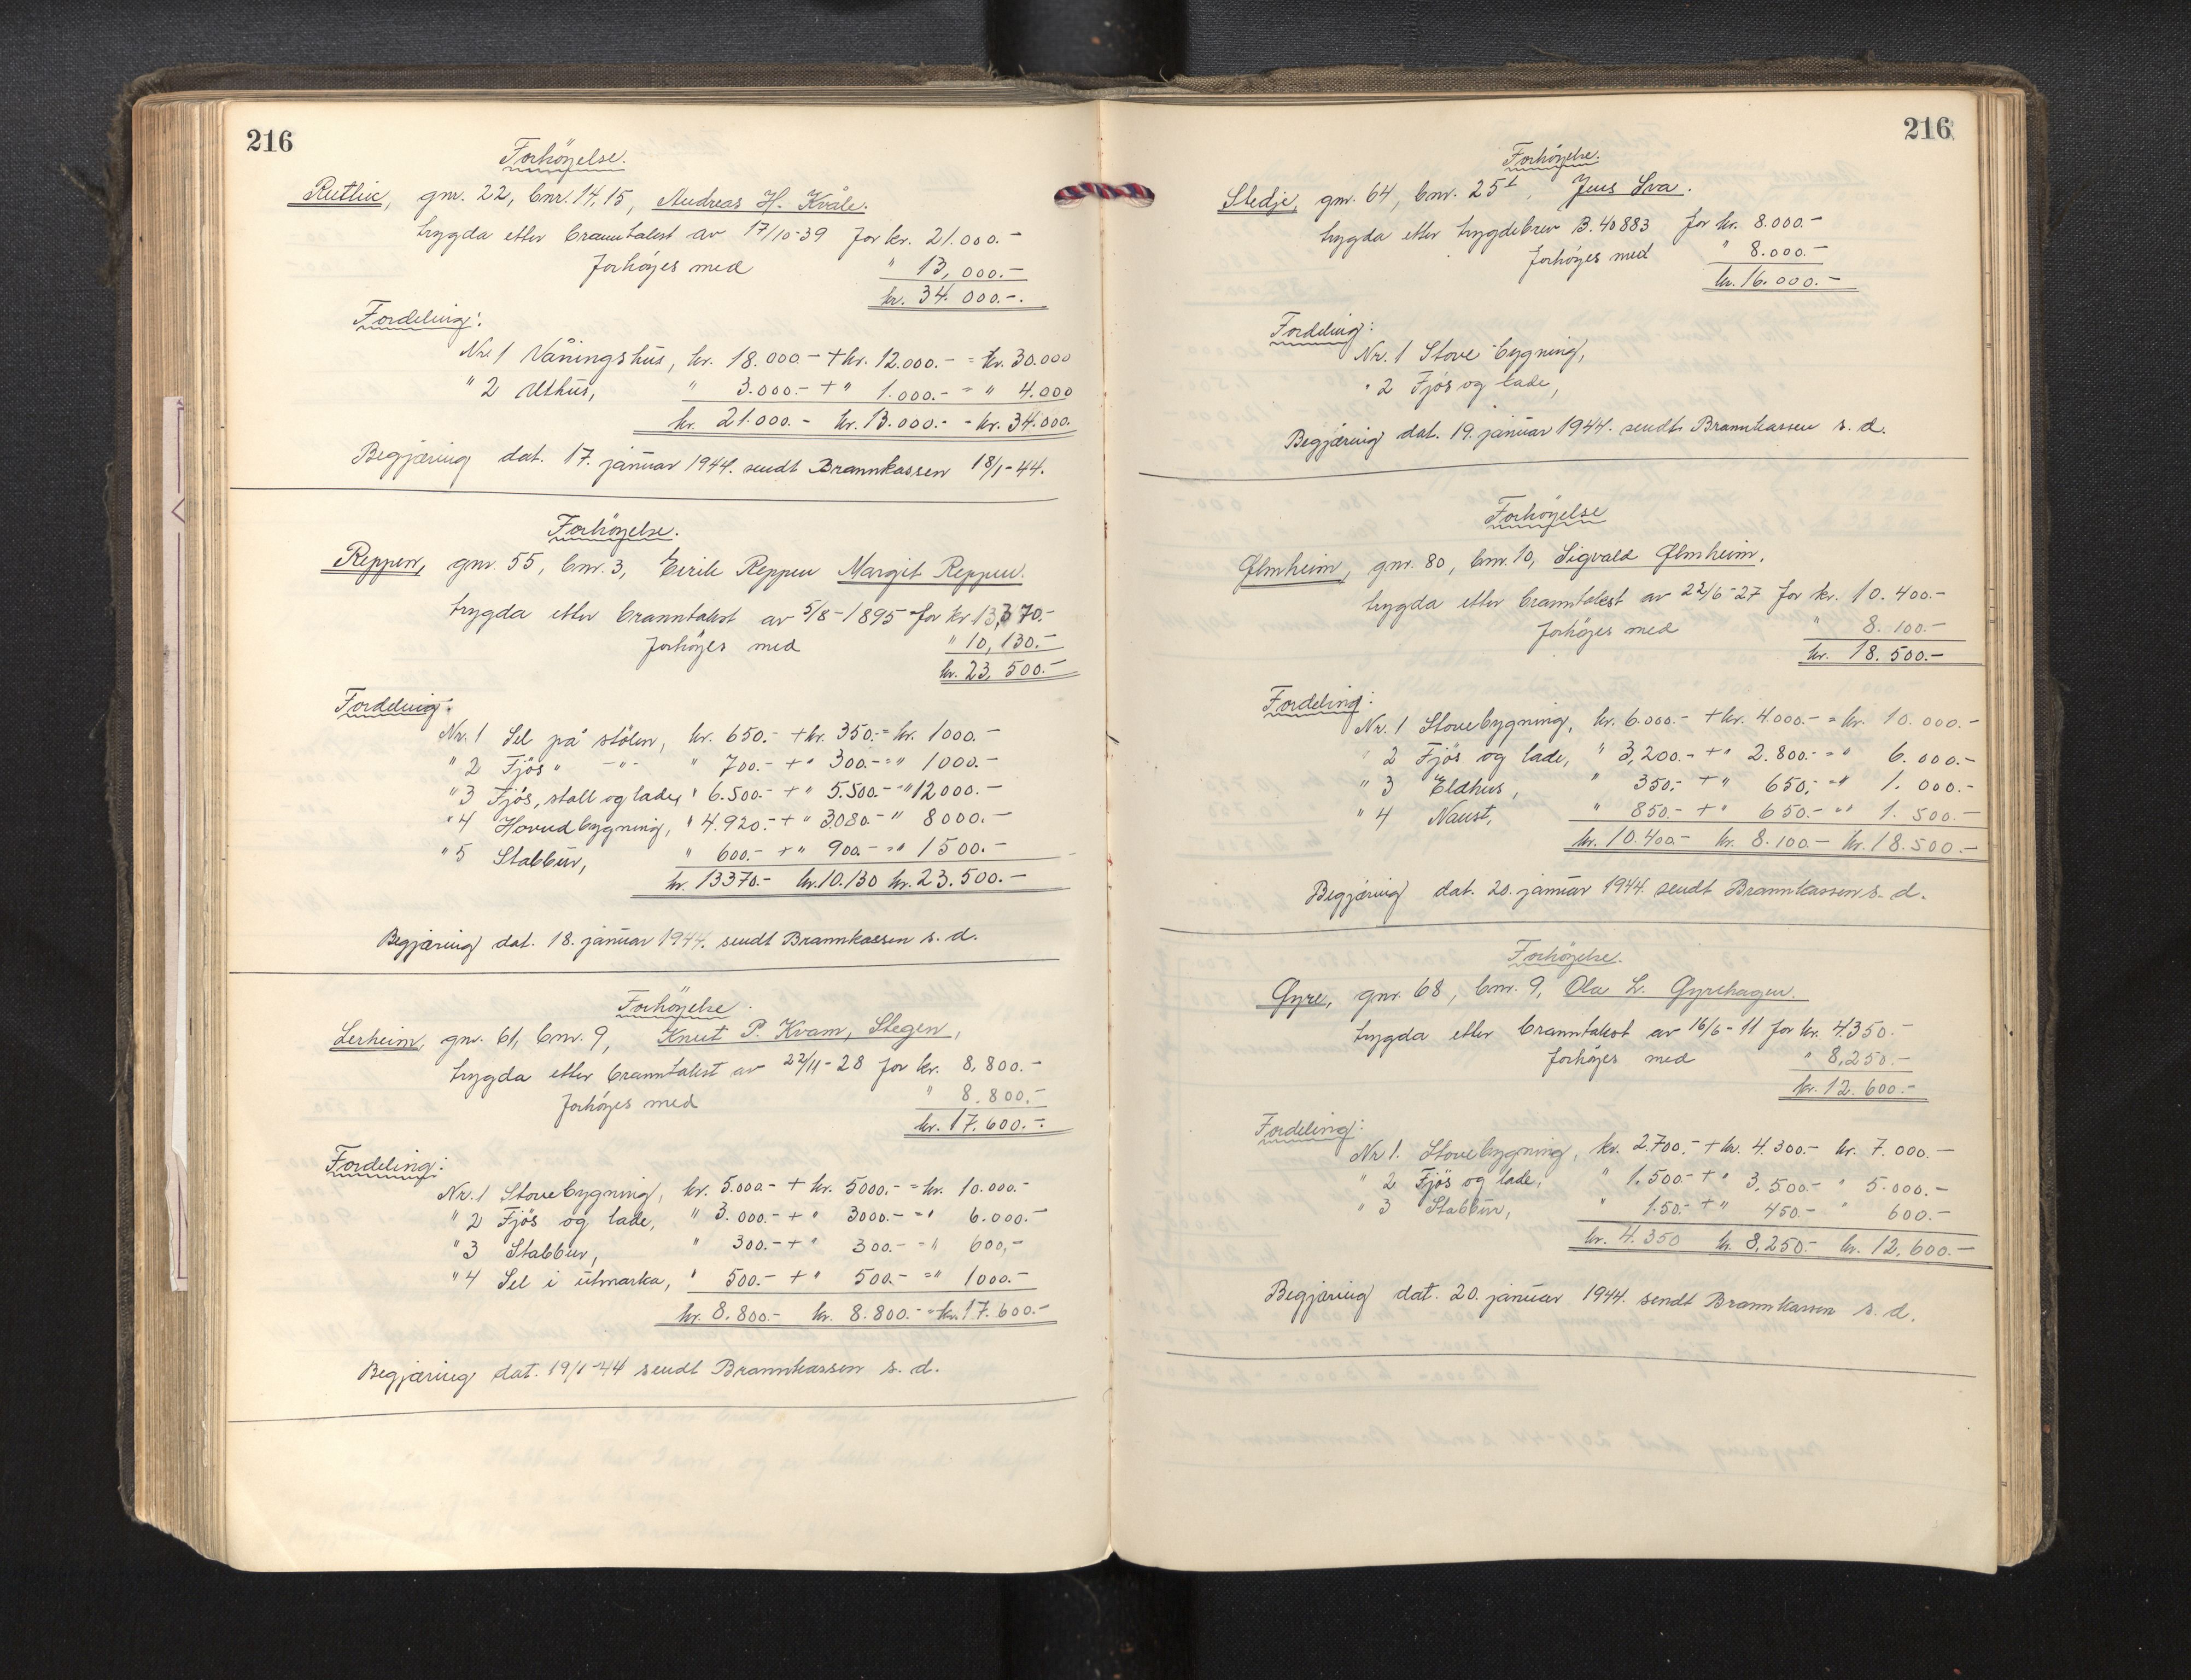 216
Forhöyelse.
Rutlin, gnr. 22, bnr. 14, 15, Andreas H. Kvåle.
trygda etter branntakst av 17/10-39 for kr. 21.000.-
forhöyes med " 13,000.-
kr. 34.000.-.
Fordeling:
Nr. 1 Våningshus, kr. 18.000 - + kr. 12.000.- = kr. 30.000
" 2 Uthus, " 3.000.- + " 1.000.- = " 4.000
kr. 21.000.- kr. 13.000.- = kr. 34.000.
Begjæring dat. 17. januar 1944. sendt Brannkassen 18/1-44.
Forhöyelse.
Reppen, gnr. 55, bnr. 3, Eirik Reppen Margit Reppen.
trygda etter branntakst av 5/8-1895 for kr 13,370.-
forhöyes med " 10,130.-
kr. 23,500.-
Fordeling:
Nr. 1 Sel på stölen, kr. 650.- + kr. 350.- = kr. 1000.-
" 2 Fjös " -"- " 700.- + " 300.- = " 1000.-
" 3 Fjös, stall og lade, " 6.500.- + " 5.500.- = " 12000.-
" 4 Hovudbygning, " 4.920.- + " 3080.- " 8000.-
" 5 Stabbur, " 600.- + " 900.- = " 1500.-
kr. 13370.- kr. 10.130 kr. 23.500.-
Begjæring dat. 18. januar 1944. sendt Brannkassen s. d.
Forhöyelse.
Lerheim, gnr. 61, bnr. 9, Knut P. Kvam, Stegen,
trygda etter branntakst av 22/11-28 for kr. 8,800.-
forhöyes med " 8.800.-
kr. 17.600.-.
Fordeling:
Nr. 1 Stovebygning, kr. 5.000.- + kr. 5000.- = kr. 10.000.-
" 2 Fjös og lade, " 3.000.- + " 3000.- = " 6.000.-
" 3 Stabbur, " 300.- + " 300.- = " 600,-
" 4 Sel i utmarka, " 500.- + " 500.- = " 1000.-
kr. 8.800.- kr. 8.800.- = kr. 17.600.-
Begjæring dat. 19/1-44 sendt Brannkassen s. d.
216
Forhöyelse.
Sledje, gnr. 64, bnr. 25, Jens Sva.
trygda etter trygdebrev B. 40883 for kr. 8.000.-
forhöyes med " 8.000.-
kr. 16.000.-
Fordeling:
Nr. 1 Stove bygning,
" 2 Fjös og lade,
Begjæring dat. 19. januar 1944. sendt Brannkassen s. d.
Forhöyelse
Ølmheim, gnr. 80, bnr. 10, Sigvald Ølmheim.
trygda etter branntakst av 22/6-27 for kr. 10.400.-
forhöyes med " 8.100.-
kr. 18.500.-
Fordeling:
Nr. 1 Stovebygning, kr. 6.000.- + kr. 4.000.- = kr. 10.000.-
" 2 Fjös og lade, " 3,200.- + " 2.800.- = " 6.000.-
" 3 Eldhus, " 350.- + " 650,- = " 1.000.-
" 4 Naust, " 850.- + " 650.- = " 1.500.-
kr. 10.400.- kr. 8.100.- kr. 18.500.-
Begjæring dat. 20. januar 1944. sendt Brannkassen s. d.
Forhöyelse.
Gyre, gnr. 68, bnr. 9, Ola L. Gyrehagen.
trygda etter branntakst av 16/6-11 for kr. 4350.-
forhöyes med " 8,250.-
kr. 12.600.-
Fordeling:
Nr 1. Stovebygning, kr. 2.700.- + kr. 4.300.- kr. 7.000.-
" 2 Fjös og lade, " 1.500.- + " 3.500.- " 5.000.-
" 3 Stabbur, " 150.- + " 450.- " 600.-
kr. 4.350 kr. 8,250.- kr. 12.600.-
Begjæring dat. 20. januar 1944. sendt Brannkassen s. d.